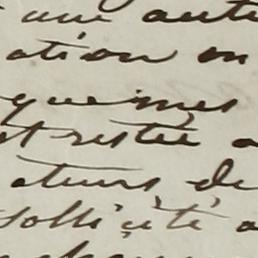 une aut
ation en
que mes
et restée a
ateurs de
sollicité a